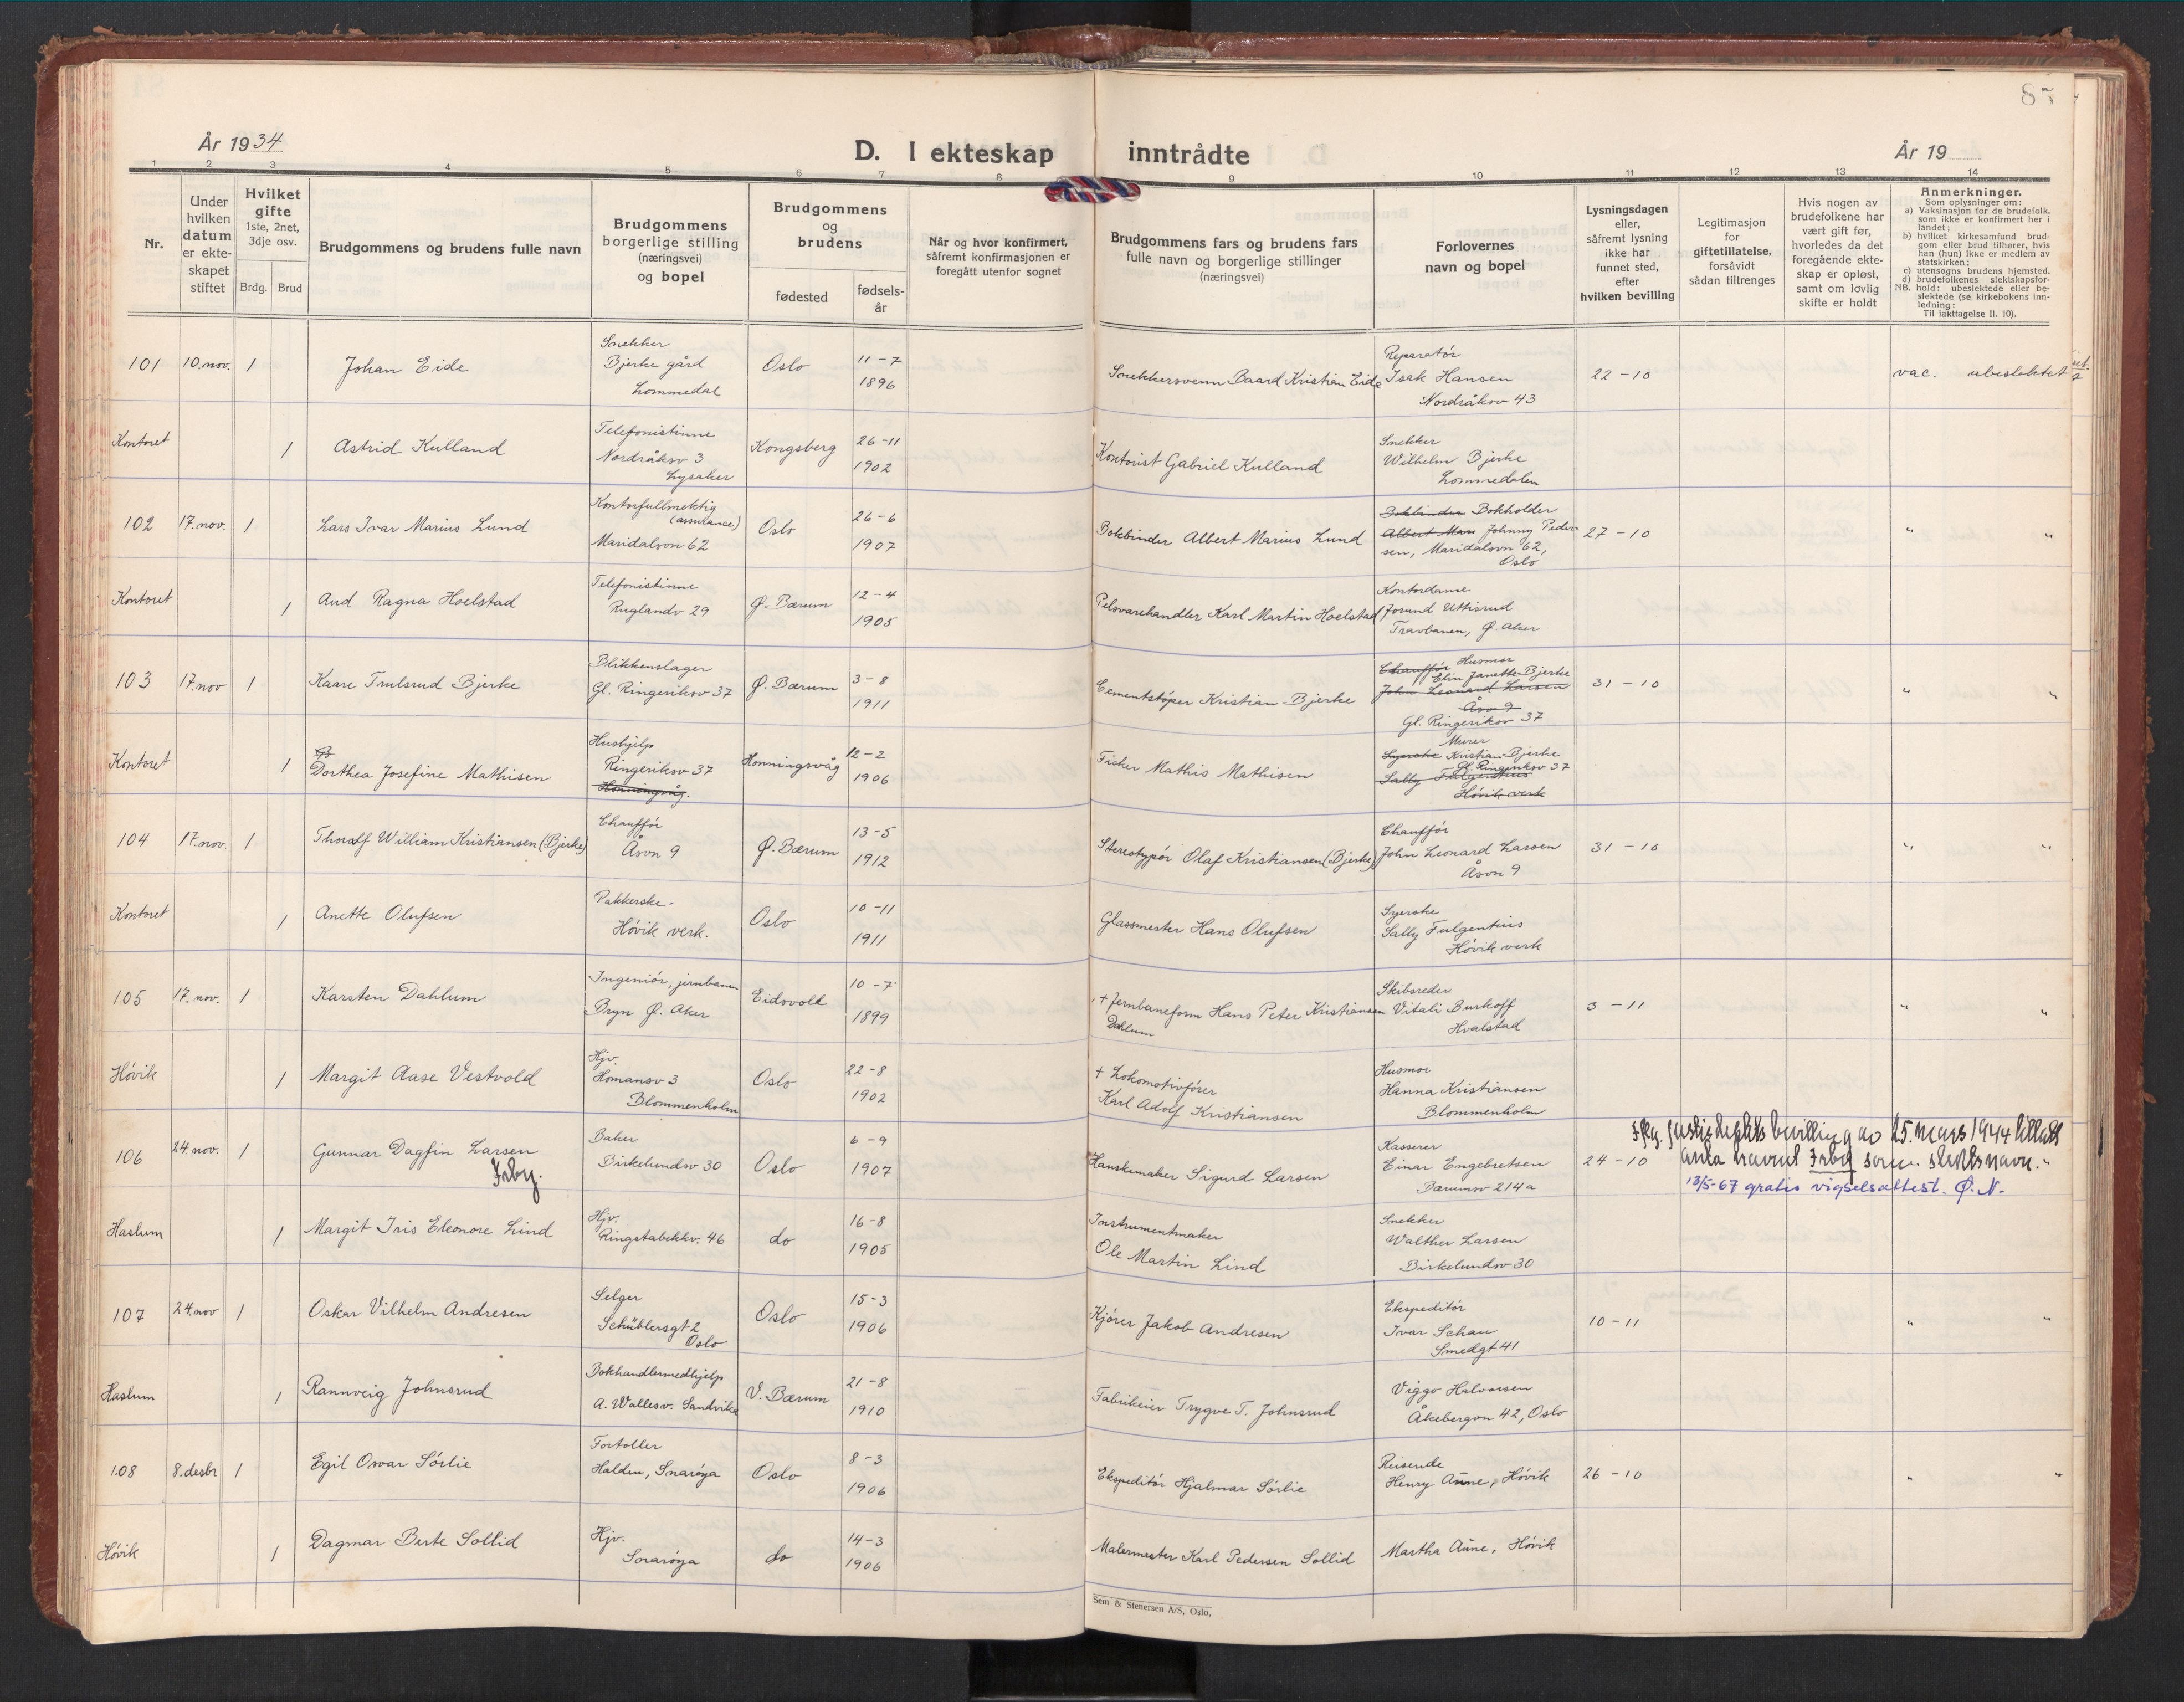 85
År 1934
D. I ekteskap inntrådte
År 19
1 2 3 4 5 6 7 8 9 10 11 12 13 14
Nr.
Under hvilken datum er ekte-skapet stiftet
Hvilket gifte 1ste, 2net, 3dje osv.
Brdg. Brud
Brudgommens og brudens fulle navn
Brudgommens borgerlige stilling (næringsvei) og bopel
Brudgommens og brudens
fødested
fødsels-år
Når og hvor konfirmert, såfremt konfirmasjonen er foregått utenfor sognet
Brudgommens fars og brudens fars fulle navn og borgerlige stillinger (næringsvei)
Forlovernes navn og bopel
Lysningsdagen eller, såfremt lysning ikke har funnet sted, efter hvilken bevilling
Legitimasjon for giftetillatelse, forsåvidt sådan tiltrenges
Hvis nogen av brudefolkene har vært gift før, hvorledes da det foregående ekte-skap er opløst, samt om lovlig skifte er holdt
Anmerkninger.
Som oplysninger om:
a) Vaksinasjon for de brudefolk, som ikke er konfirmert her i landet;
b) hvilket kirkesamfund brud-gom eller brud tilhører, hvis han (hun) ikke er medlem av statskirken;
c) utensogns brudens hjemsted.
d) brudefolkenes slektskapsfor-hold: ubeslektede eller be-slektede (se kirkebokens inn-ledning:
NB.
Til iakttagelse II. 10).
101 10. nov. 1 Johan Eide Snekker Bjerke gård Lommedal Oslo 11-7 1896 Snekkersvenn Baard Kristian Eide Reparatør Isak Hansen Nordråksv 43 22-10 vac. ubeslektet
Kontoret 1 Astrid Kulland Telefonistinne Nordråksv 3 Lysaker Kongsberg 26-11 1902 Kontorist Gabriel Kulland Snekker Wilhelm Bjerke Lommedalen
102 17. nov. 1 Lars Ivar Marius Lund Kontorfullmektig (assurance) Maridalsvn 62 Oslo 26-6 1907 Bokbinder Albert Marius Lund Bokbinder Bokholder Albert Mar Johnny Peder-sen, Maridalsvn 62, Oslo 27-10 " "
Kontoret 1 Aud Ragna Hoelstad Telefonistinne Ruglandv 29 Ø. Bærum 12-4 1905 Pelsvarehandler Karl Martin Hoelstad Kontordame Jorund Uttisrud Travbanen, Ø. Aker
103 17. nov 1 Kaare Trulsrud Bjerke Blikkenslager Gl. Ringeriksv 37 Ø. Bærum 3-8 1911 Cementstøper Kristian Bjerke Chauffør Husmor Elin Janette Bjerke John Leonard Larsen Åsvn 9 Gl. Ringeriksv 37 31-10 " "
Kontoret 1 Dorthea Josefine Mathisen Hushjelp Ringeriksv 37 Honningsvåg. Honningsvåg 12-2 1906 Fisker Mathis Mathisen Murer Syerske Kristian Bjerke Gl. Ringeriksv 37 Sally Fulgentius Høvik verk
104 17. nov. 1 Thoralf William Kristiansen (Bjerke) Chauffør Åsvn 9 Ø. Bærum 13-5 1912 Stereotypør Olaf Kristiansen (Bjerke) Chauffør John Leonard Larsen Åsvn 9 31-10 " "
Kontoret 1 Anette Olufsen Pakkerske Høvik verk. Oslo 10-11 1911 Glassmester Hans Olufsen Syerske Sally Fulgentius Høvik verk
105 17. nov. 1 Karsten Dahlum Ingeniør, jernbanen Bryn Ø. Aker Eidsvold 10-7 1899 + Jernbaneform Hans Peter Kristiansen Dahlum Skibsreder Vitali Burkoff Hvalstad 3-11 " "
Høvik 1 Margit Aase Vestvold Hjv. Homansv 3 Blommenholm Oslo 22-8 1902 + Lokomotivfører Karl Adolf Kristiansen Husmor Hanna Kristiansen Blommenholm
106 24. nov. 1 Gunnar Dagfin Larsen Isby. Baker Birkelundsv 30 Oslo 6-9 1907 Hanskemaker Sigurd Larsen Kasserer Einar Engebretsen Bærumsv 214a 24-10 Ifg. justisdepts bevilling av 25. mars 1944 tillatt anta navnet Isby som slektsnavn. "
18/5-67 gratis vigselsattest. Ø. N.
Haslum 1 Margit Iris Eleonore Lind Hjv. Ringstabekkv. 46 do 16-8 1905 Instrumentmaker Ole Martin Lind Snekker Walther Larsen Birkelundsv 30
107 24. nov 1 Oskar Vilhelm Andresen Selger Schüblersgt 2 Oslo Oslo 15-3 1906 Kjører Jakob Andresen Ekspeditør Ivar Schau Smedgt 41 10-11 " "
Haslum 1 Rannveig Johnsrud Bokhandlermedhjelp A. Wallesv. Sandvika V. Bærum 21-8 1910 Fabrikeier Trygve T. Johnsrud Viggo Halvorsen Åkebergvn 42, Oslo
108 8. desbr 1 Egil Osvar Sørlie Fortoller Halden, Snarøya Oslo 8-3 1906 Ekspeditør Hjalmar Sørlie Reisende Henry Aune, Høvik 26-10 " "
Høvik 1 Dagmar Berte Sollid Hjv. Snarøya do 14-3 1906 Malermester Karl Pedersen Sollid Martha Aune, Høvik
Sem & Stenersen A/S, Oslo.